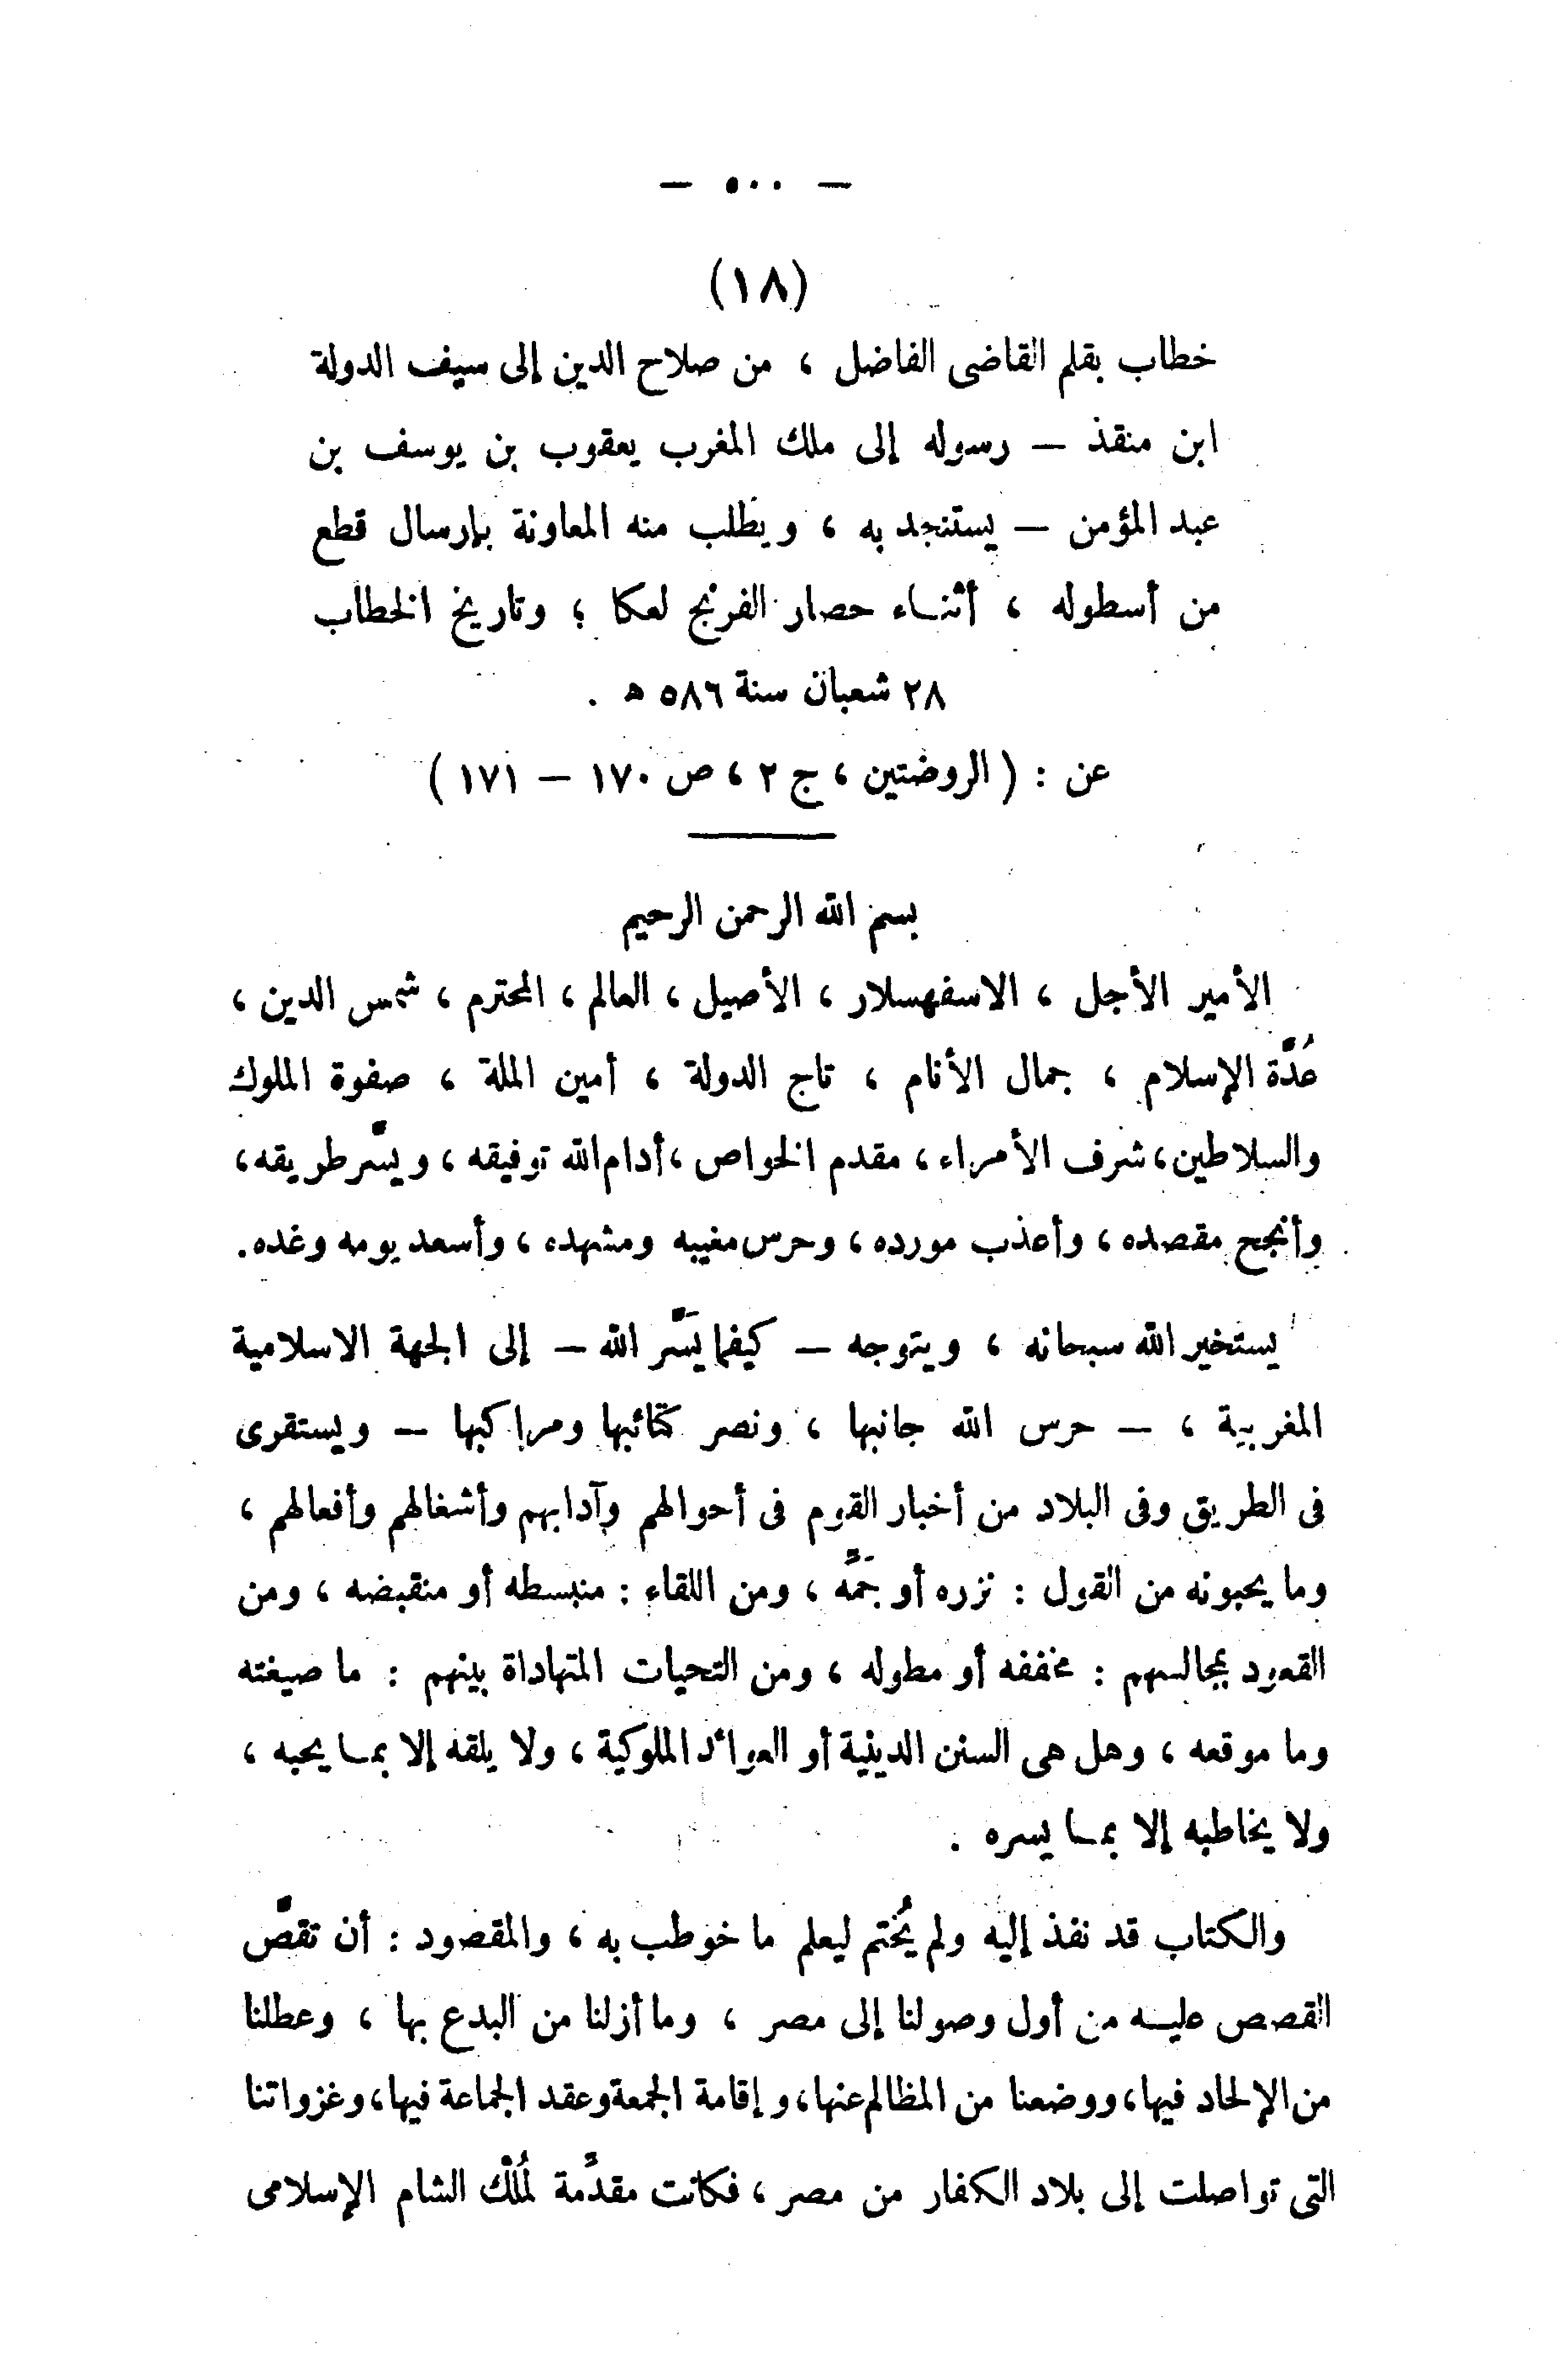 — ٥٠٠ —
(١٨)
خطاب بقلم القاضى الفاضل ، من صلاح الدين إلى سيف الدولة
ابن منقذ — رسوله إلى ملك المغرب يعقوب بن يوسف بن
عبد المؤمن — يستنجد به ، ويطلب منه المعاونة بإرسال قطع
من أسطوله ، أثناء حصار الفرنج لعكا ؛ وتاريخ الخطاب
٢٨ شعبان سنة ٥٨٦ ه .
عن : ( الروضتين ، ج ٢ ، ص ١٧٠ — ١٧١ )
بسم الله الرحمن الرحيم
الأمير الأجل ، الاسفهسلار ، الأصيل ، العالم ، المحترم ، شمس الدين ،
عُدَّة الإسلام ، جمال الأنام ، تاج الدولة ، أمين الملة ، صفوة الملوك
والسلاطين ، شرف الأمراء ، مقدم الخواص ، أدام الله توفيقه ، ويسّر طريقه ،
وأنجح مقصده ، وأعذب مورده ، وحرس مغيبه ومشهده ، وأسعد يومه وغده .
يستخير الله سبحانه ، ويتوجه — كيفما يَسَّر الله — إلى الجهة الاسلامية
المغربية ، — حرس الله جانبها ، ونصر كتائبها ومراكبها — ويستقرى
فى الطريق وفى البلاد من أخبار القوم فى أحوالهم وآدابهم وأشغالهم وأفعالهم ،
وما يحبونه من القول : نزره أو جَمَّه ، ومن اللقاء : منبسطه أو منقبضه ، ومن
القعود بمجالسهم : مخففه أو مطوله ، ومن التحيات المتهاداة بينهم : ما صيغته
وما موقعه ، وهل هى السنن الدينية أو العوائد الملوكية ، ولا يلقه إلا بما يحبه ،
ولا يخاطبه إلا بما يسره .
والكتاب قد نفذ إليه ولم يُختم ليعلم ما خوطب به ، والمقصود : أن تقصّ
القصص عليه من أول وصولنا إلى مصر ، وما أزلنا من البدع بها ، وعطلنا
من الإلحاد فيها ، ووضعنا من المظالم عنها ، وإقامة الجمعة وعقد الجماعة فيها ، وغزواتنا
التى تواصلت إلى بلاد الكفار من مصر ، فكانت مقدِّمة لمُلْك الشام الإسلامى